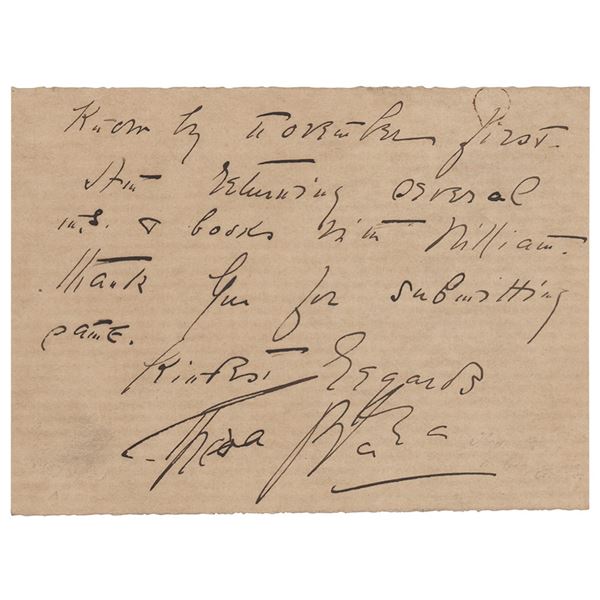 Know by November first.
Am returning several
ms. & books with William.
Thank you for submitting
same.
Kindest Regards
Theda Bara